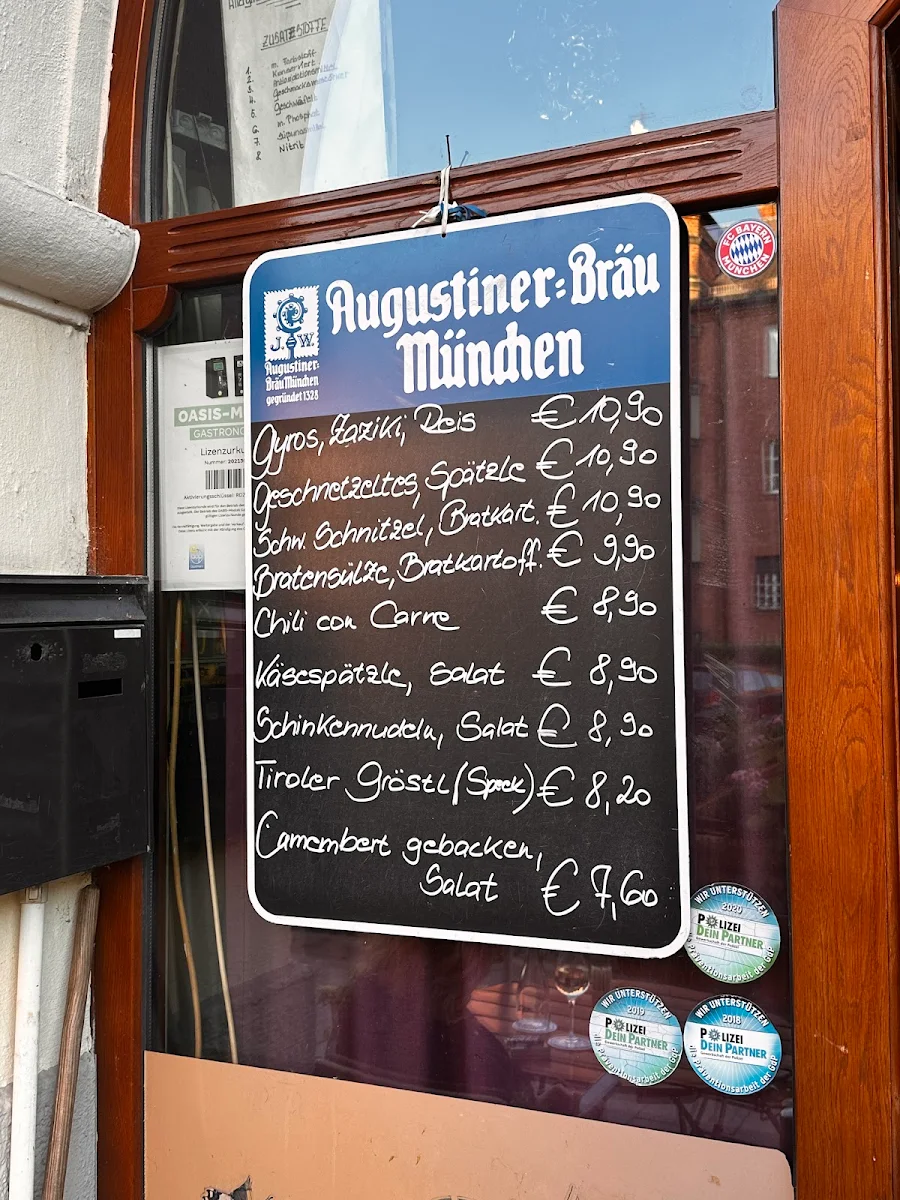 ZUSATZSTOFFE
1. m. Farbstoff
2. Konserviert
3. Antioxidationsmittel
4. Geschmacksverstärker
5. Geschwefelt
6.
7. m. Phosphat
8. Nitrit
FC BAYERN
MÜNCHEN
Augustiner-Bräu
München
J. W.
Augustiner-
Bräu München
gegründet 1328
OASIS-M
GASTRONO
Lizenzurku
Gyros, Zaziki, Reis € 10,90
Geschnetzeltes, Spätzle € 10,90
Schw. Schnitzel, Bratkart. € 10,90
Bratensülze, Bratkartoff. € 9,90
Chili con Carne € 8,90
Käsespätzle, Salat € 8,90
Schinkennudeln, Salat € 8,90
Tiroler Gröstl (Speck) € 8,20
Camembert gebacken,
Salat € 7,60
WIR UNTERSTÜTZEN
2020
POLIZEI
DEIN PARTNER
Gewerkschaft der Polizei
die Präventionsarbeit der GdP
WIR UNTERSTÜTZEN
2019
POLIZEI
DEIN PARTNER
Gewerkschaft der Polizei
die Präventionsarbeit der GdP
WIR UNTERSTÜTZEN
2018
POLIZEI
DEIN PARTNER
Gewerkschaft der Polizei
die Präventionsarbeit der GdP